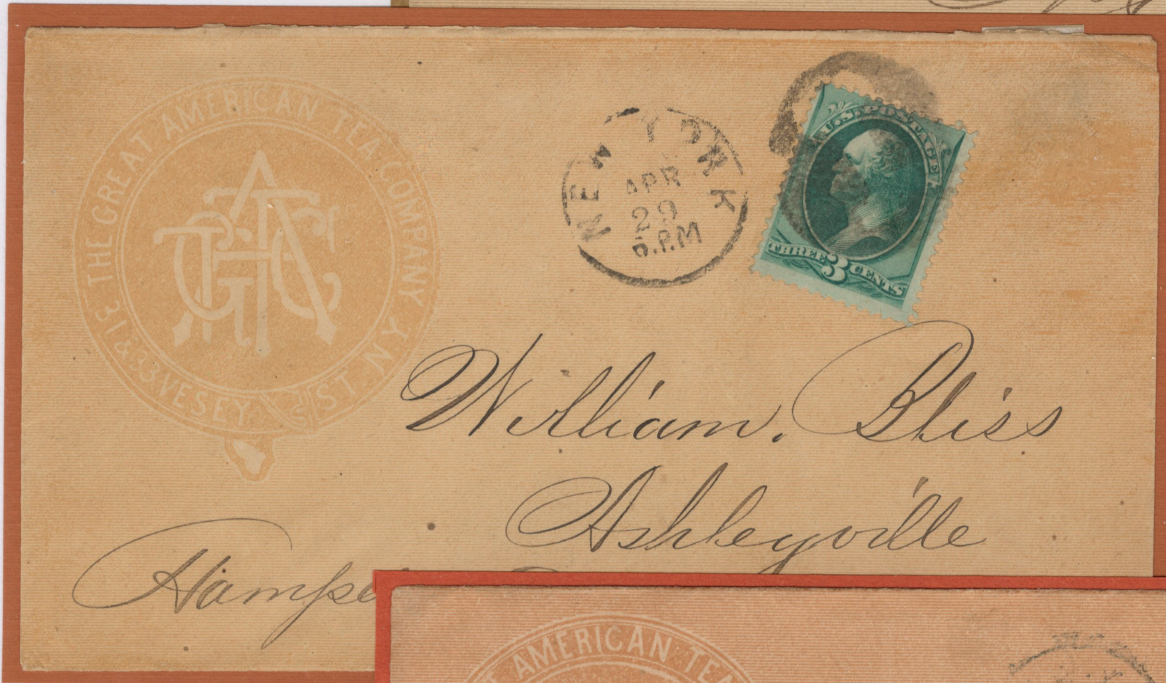 THE GREAT AMERICAN TEA COMPANY
31 & 33 VESEY ST. N.Y.
GATC
NEW YORK
APR
29
6 P.M
U.S. POSTAGE
THREE 3 CENTS
William. Bliss
Ashleyville
AMERICAN TEA